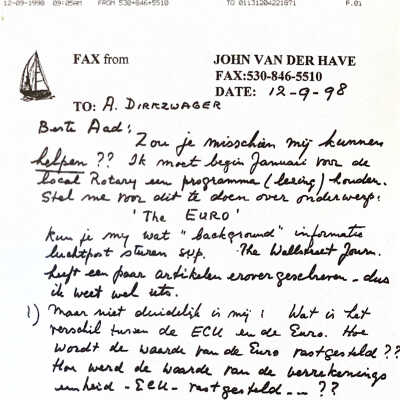 12-09-1998 09:05AM FROM 530+846+5510 TO 01131204221871 P.01
FAX from JOHN VAN DER HAVE
FAX:530-846-5510
DATE: 12-9-98
TO: A. DIRKZWAGER
Beste Aad:
Zou je misschien mij kunnen
helpen ?? Ik moet begin Januari voor de
local Rotary een programma (lezing) houden.
Stel me voor dit te doen over onderwerp:
'The EURO'
Kun je my wat "background" informatie
luchtpost sturen svp. The Wallstreet Journ.
heeft een paar artikelen erover geschreven - dus
ik weet wel iets.
1) Maar niet duidelijk is mij: Wat is het
verschil tussen de ECU en de Euro. Hoe
wordt de waarde van de Euro vastgesteld ??
Hoe werd de waarde van de verrekenings
eenheid - ECU - vastgesteld -- ??